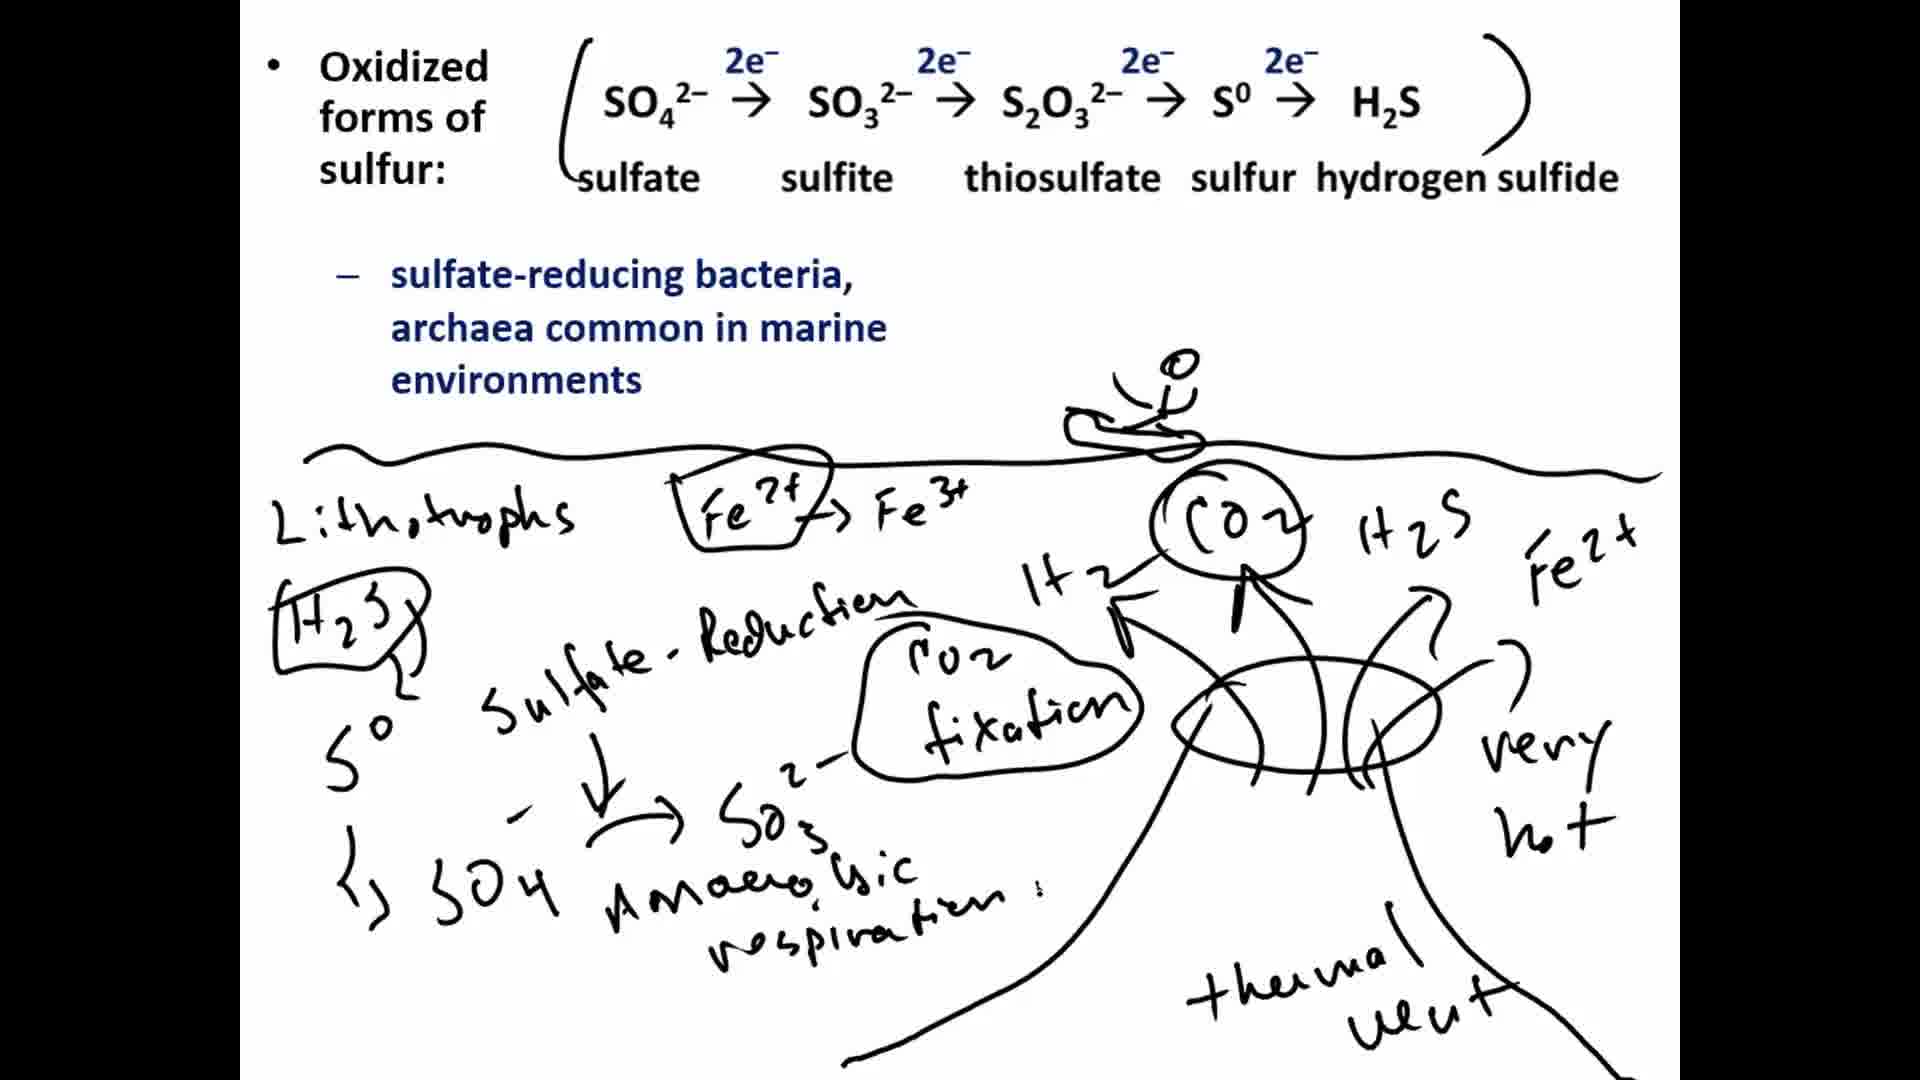 • Oxidized forms of sulfur:
2e⁻ 2e⁻ 2e⁻ 2e⁻
SO₄²⁻ → SO₃²⁻ → S₂O₃²⁻ → S⁰ → H₂S
sulfate sulfite thiosulfate sulfur hydrogen sulfide
– sulfate-reducing bacteria,
archaea common in marine
environments
Lithotrophs
Fe²⁺ → Fe³⁺
H₂
CO₂
H₂S
Fe²⁺
H₂S
S⁰
SO₄⁻ → SO₃²⁻
Sulfate-Reduction
Anaerobic
respiration
CO₂
fixation
very
hot
thermal
vent